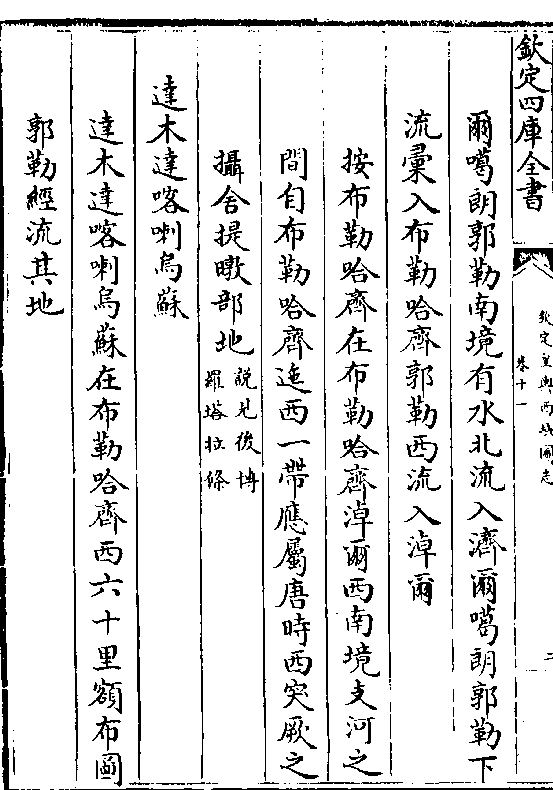 欽定四庫全書
欽定皇輿西域圖志
卷十一
二
爾噶朗郭勒南境有水北流入濟爾噶朗郭勒下
流彚入布勒哈齊郭勒西流入淖爾
按布勒哈齊在布勒哈齊淖爾西南境支河之
間自布勒哈齊迤西一帶應屬唐時西突厥之
攝舍提暾部地説見後博
羅塔拉條
達木達喀喇烏蘇
達木達喀喇烏蘇在布勒哈齊西六十里額布圖
郭勒經流其地